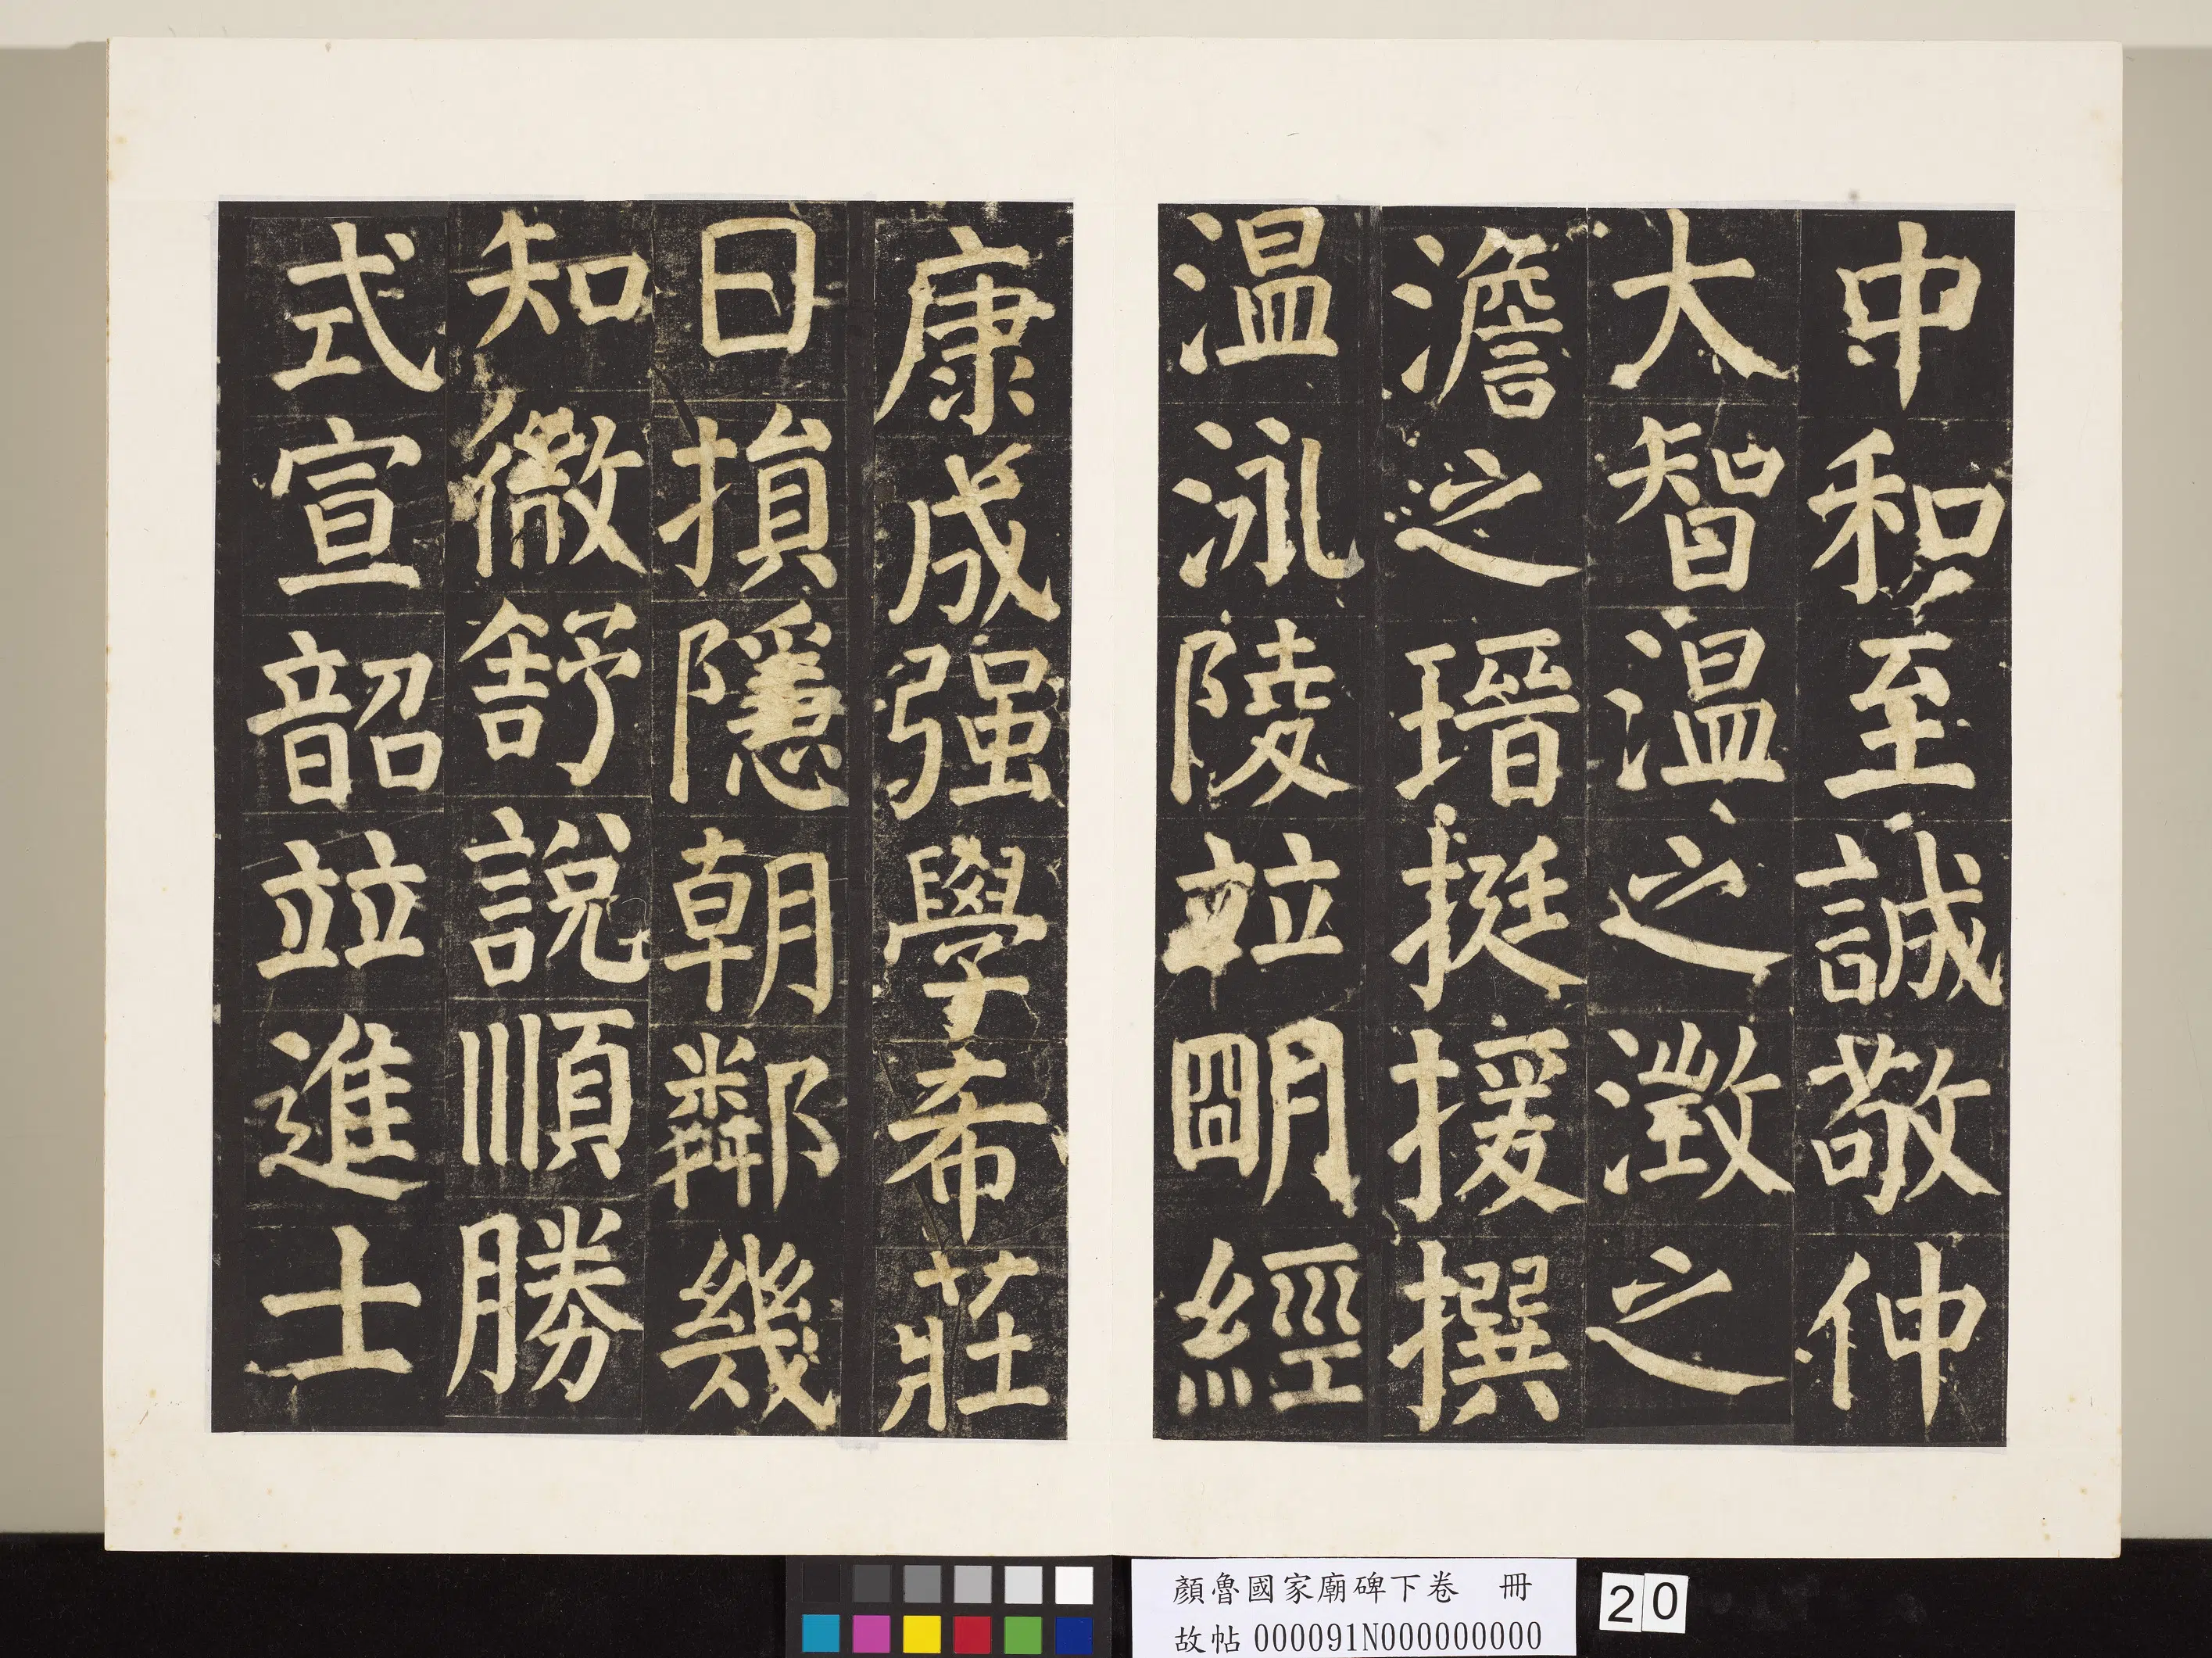 中和至誠敬仲
大智温之澂之
澹之瑨挺援撰
温泳陵竝朙經
康成强學希莊
日損隱朝鄰幾
知微舒說順勝
式宣韶竝進士
顏魯國家廟碑下卷 冊
故帖000091N000000000
20